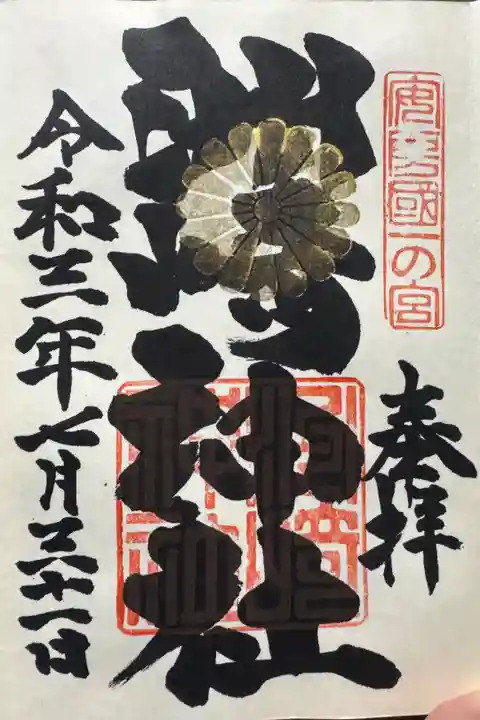 安房國一の宮
奉拝
洲崎神社
令和三年七月三十一日